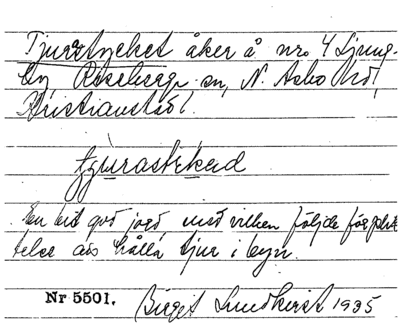 Tjurstycket åker å nr. 4 Ljung-
by Röseberga sn, N. Åsbo hd,
Kristianstad l.
tjurastekad
En bit god jord med vilken följde förplik
telse att hålla tjur i byn.
Nr 5501. Birgit Lundkvist 1935